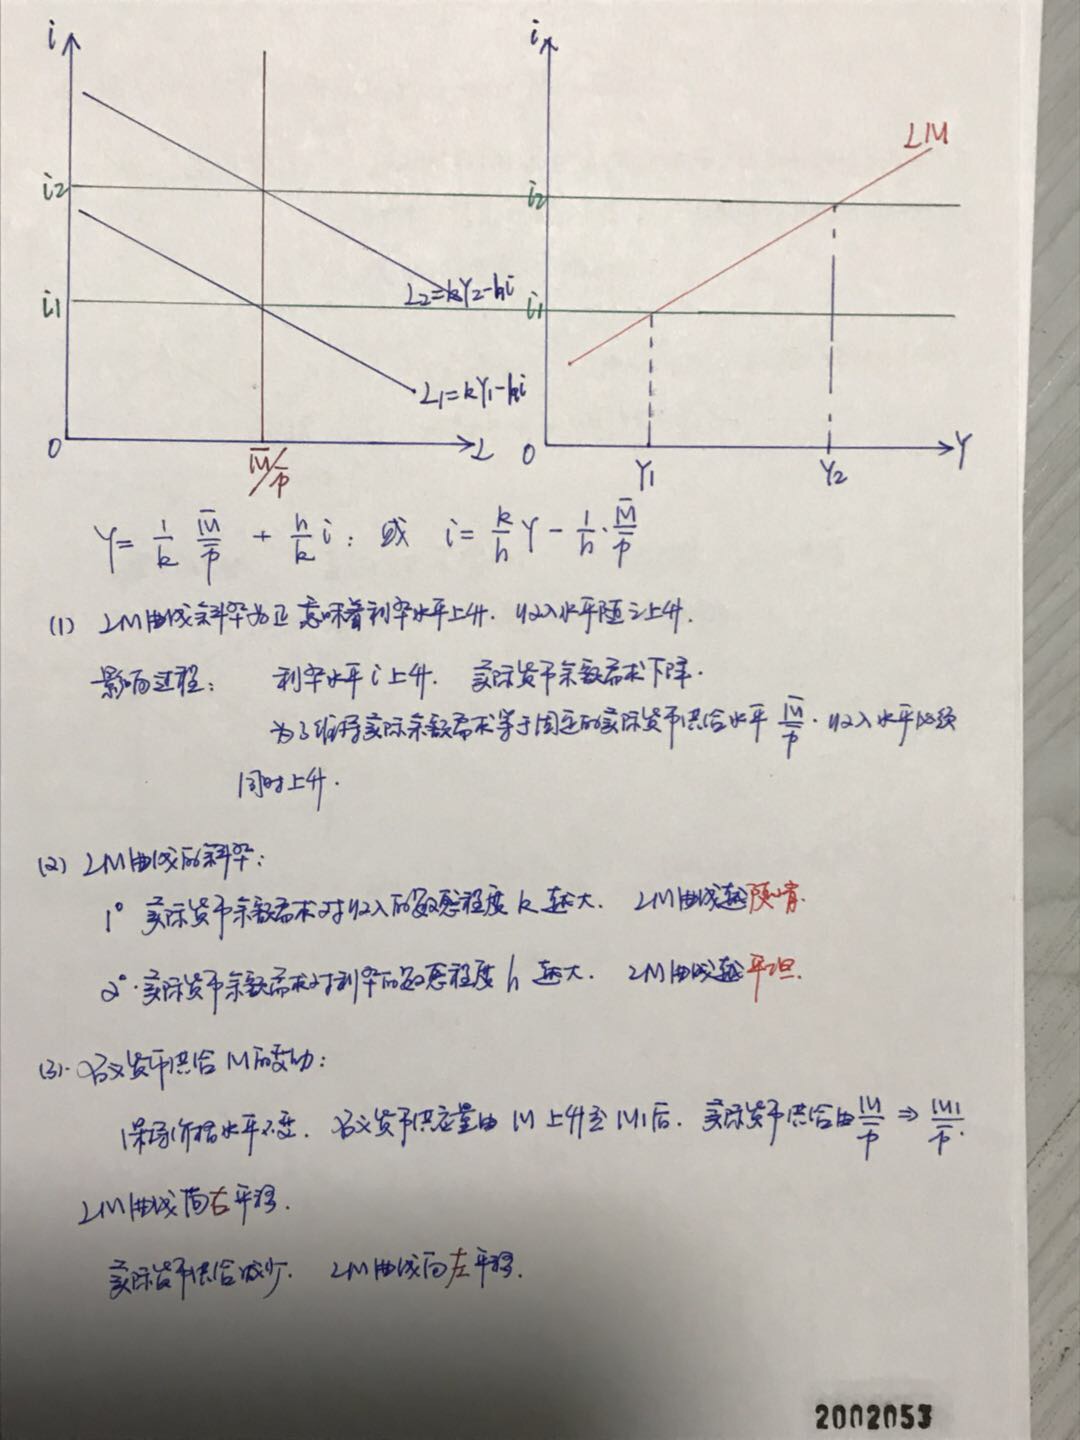 i
i
LM
i2
i2
i1
i1
L2=kY2-hi
L1=kY1-hi
0
M̄/P̄
L
0
Y1
Y2
Y
Y= 1/k M̄/P̄ + h/k i; 或 i= k/h Y - 1/h · M̄/P̄
(1) LM曲线斜率为正意味着利率水平上升. 收入水平随之上升.
影响过程: 利率水平i上升. 实际货币余额需求下降.
为了维持实际余额需求等于固定的实际货币供给水平 M̄/P̄. 收入水平必须
同时上升.
(2) LM曲线的斜率:
1° 实际货币余额需求对收入的敏感程度 k 越大. LM曲线越陡峭.
2°. 实际货币余额需求对利率的敏感程度 h 越大. LM曲线越平坦.
(3). 名义货币供给M的变动:
保持价格水平不变. 名义货币供应量由 M 上升至 M1后. 实际货币供给由 M/P̄ ⇒ M1/P̄.
LM曲线向右平移.
实际货币供给减少. LM曲线向左平移.
2002053